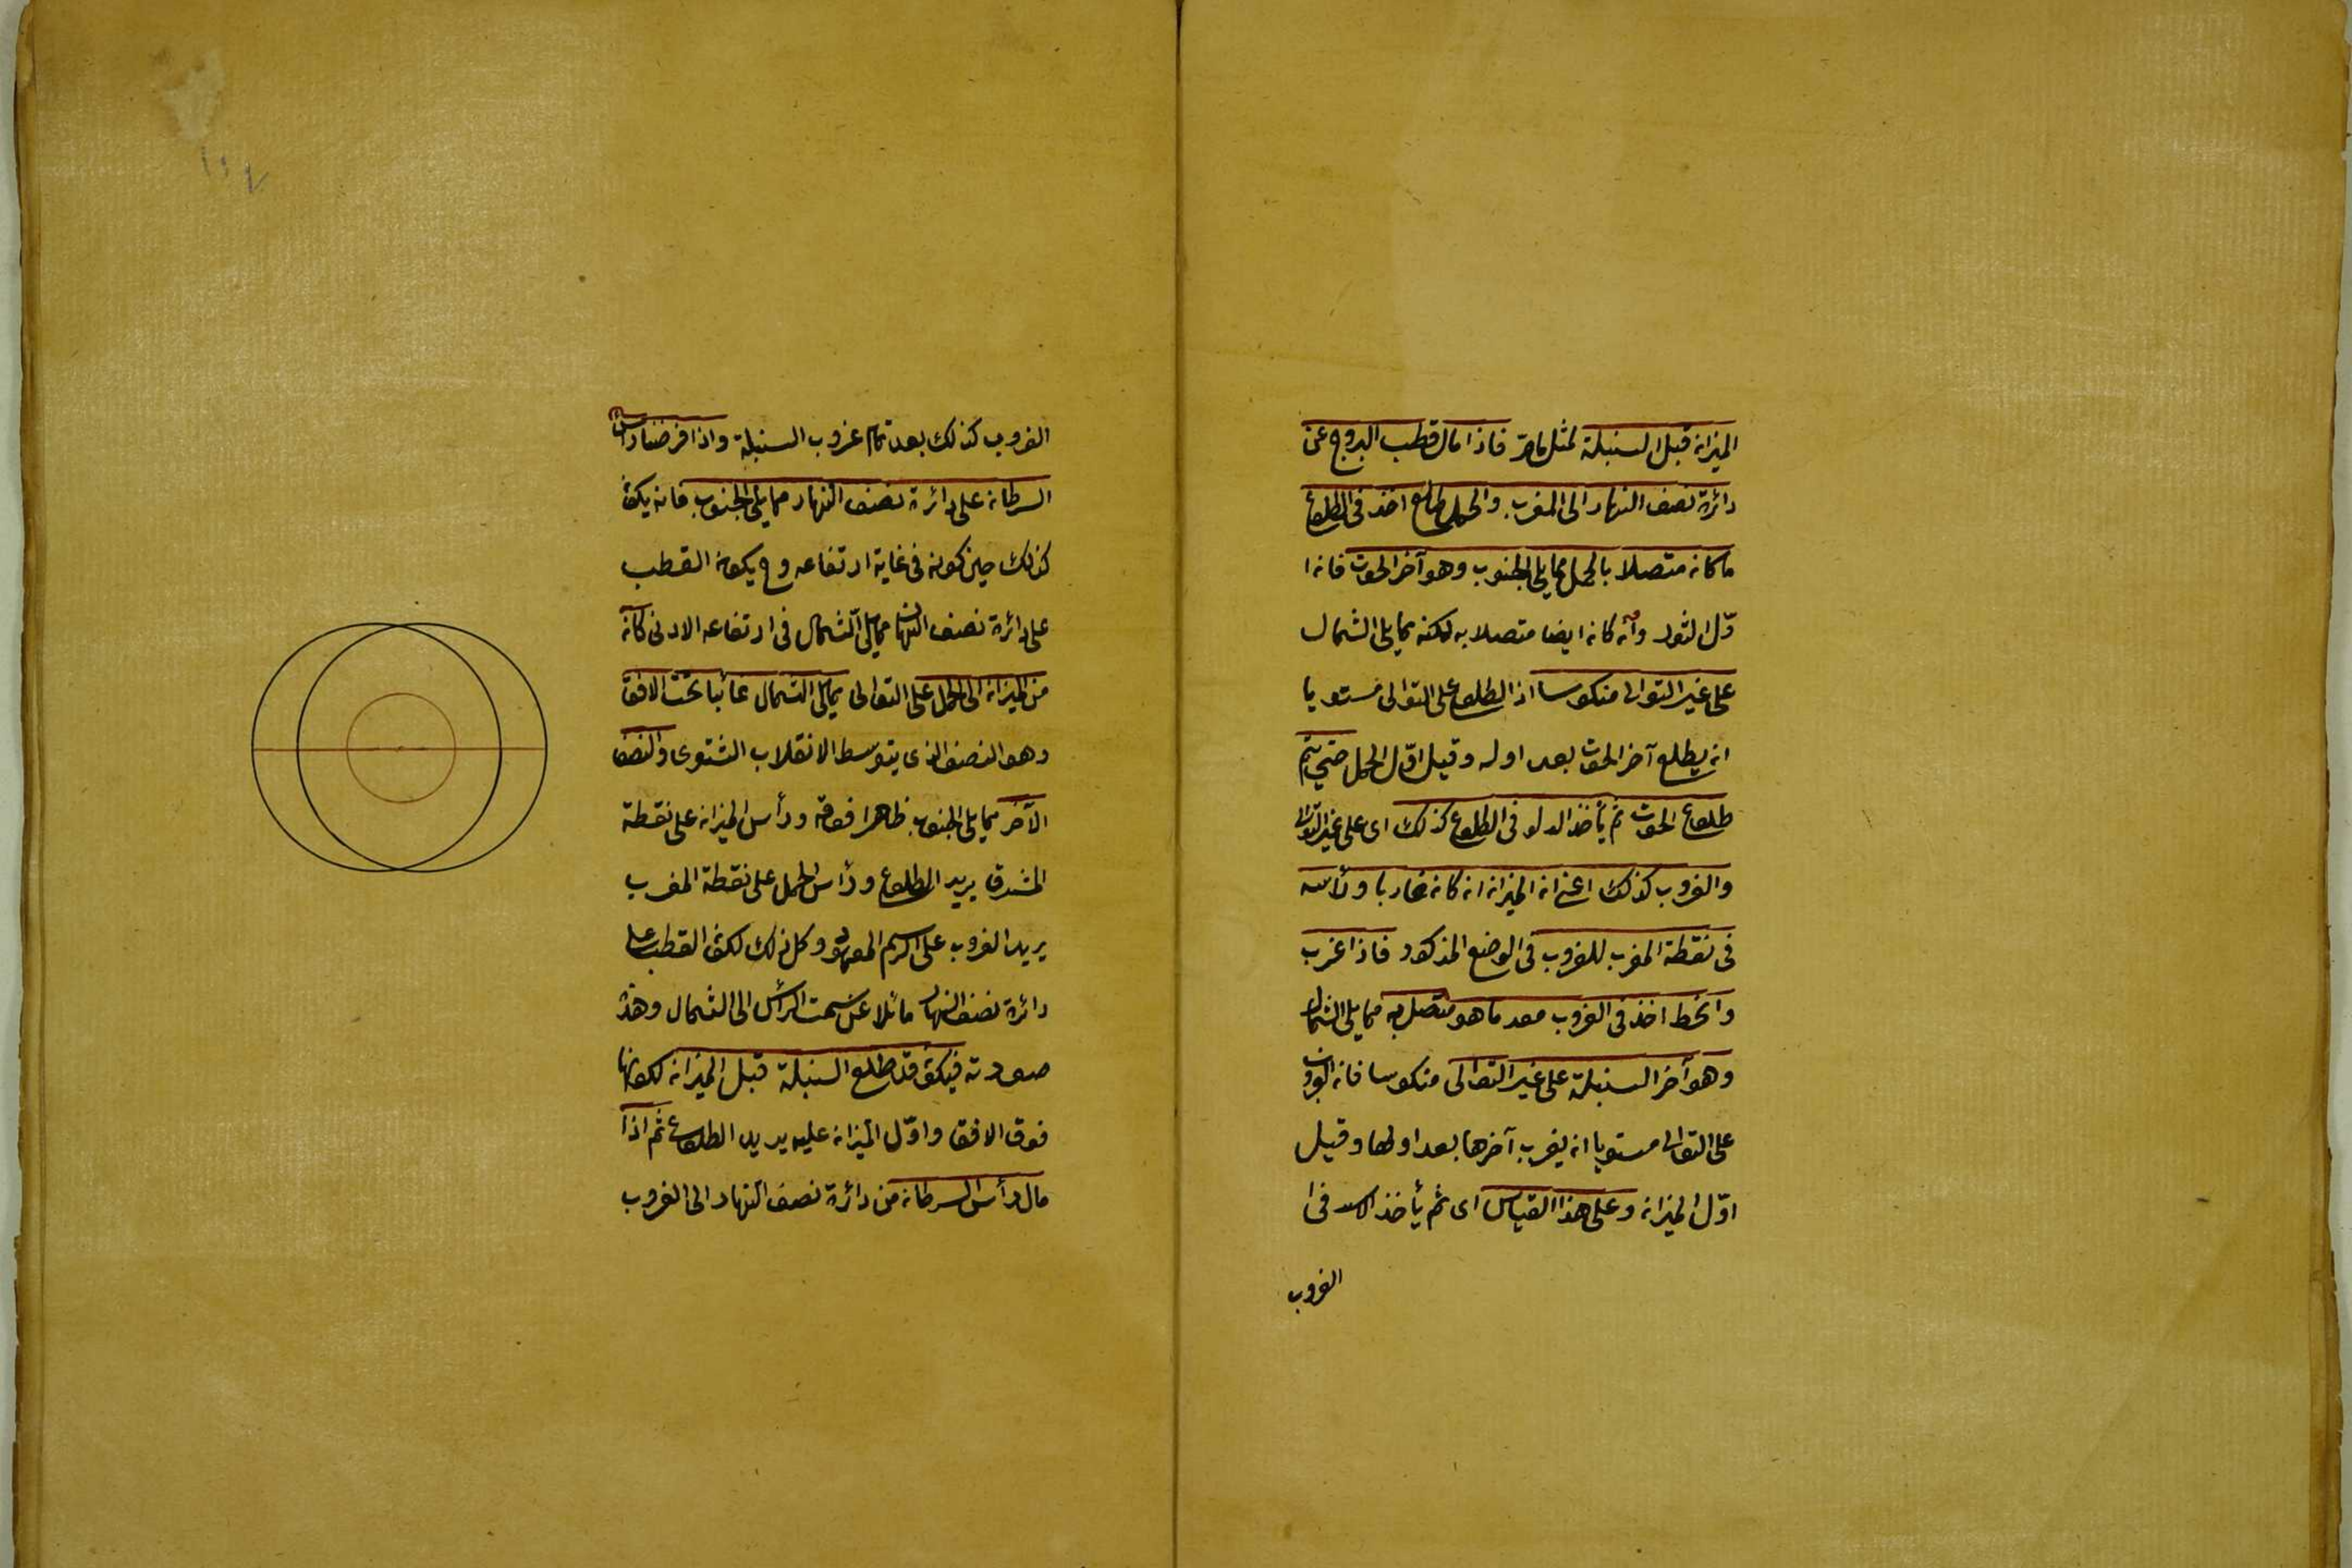 الميزان قبل السنبلة لمثل ما مر فاذا مال قطب البروج عن
دائرة نصف النهار الى المغرب والحمل طالع اخذ فى الطلوع
ما كان متصلا بالحمل مما يلى الجنوب وهو آخر الحوت فان ا
وّل الثور وانه كان ايضا متصلا به لكنه مما يلى الشمال
على غير التوالى منكوسا اذ الطلوع على التوالى مستويا
ان يطلع آخر الحوت بعد اوله وقبل اوّل الحمل حتى يتم
طلوع الحوت ثم يأخذ الدلو فى الطلوع كذلك اى على غير التوالى
والغروب كذلك اعنى ان الميزان ان كان غاربا ورأسه
فى نقطة المغرب للغروب فى الوضع المذكور فاذا غرب
وانحط اخذ فى الغروب معه ما هو متصل به مما يلى الشمال
وهو آخر السنبلة على غير التوالى منكوسا فان الغروب
على التوالى مستويا ان يغرب آخرها بعد اولها وقبل
اوّل الميزان وعلى هذا القياس اى ثم يأخذ الاسد فى ا
الغروب
الغروب كذلك بعد تمام غروب السنبلة واذا فرضنا رأس
السرطان على دائرة نصف النهار مما يلى الجنوب فانه يكون
كذلك حين كونه فى غاية ارتفاعه وح يكون القطب
على دائرة نصف النهار مما يلى الشمال فى ارتفاعه الادنى كان
من الميزان الى الحمل على التوالى مما يلى الشمال غائبا تحت الافق
وهو النصف الذى يتوسط الانقلاب الشتوى والنصف
الآخر مما يلى الجنوب ظاهرا فوقه ورأس الميزان على نقطة
المشرق يريد الطلوع ورأس الحمل على نقطة المغرب
يريد الغروب على الرسم المعهود وكل ذلك لكون القطب على
دائرة نصف النهار مائلا عن سمت الرأس الى الشمال وهذه
صورته فيكون قد طلع السنبلة قبل الميزان لكونها
فوق الافق واوّل الميزان عليه يريد الطلوع ثم اذا
مال رأس السرطان من دائرة نصف النهار الى الغروب